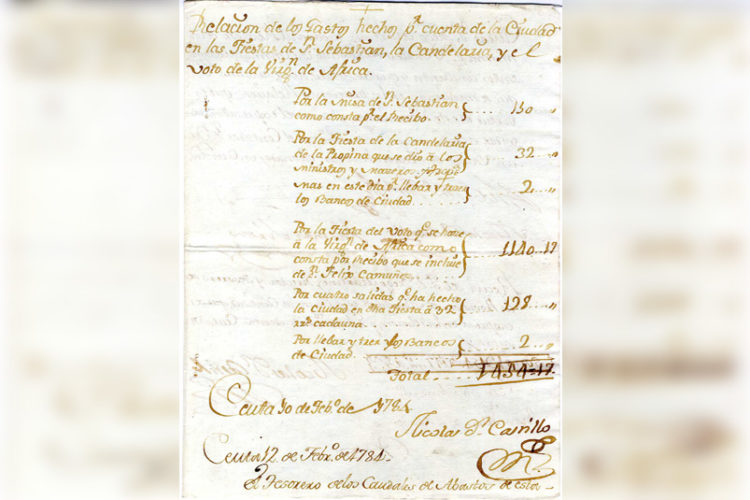 Relacion de los Gastos hechos pr. cuenta de la Ciudad
en las Fiestas de Sn. Sebastian, la Candelaria, y el
Voto de la Virgn. de Africa.
Por la misa de Sn. Sebastian
como consta pr. el Recibo. 150 ,,
Por la Fiesta de la Candelaria
de la Propina que se dio á los 32 ,,
ministros y
mas en este dia pr. llebar y traer 2 ,,
los Bancos de Ciudad
Por la Fiesta del Voto qe. se hace
á la Virgn. de Africa como 1140..17
consta por Recibo que se incluie
de Dn. Felix Camuñez
Por cuatro salidas qe. ha hecho
la Ciudad en dha Fiesta á 32 128 ,,
rrs. cadauna
Por llebar y trer los Bancos 2 ,,
de Ciudad
Total 1454=17
Ceuta 10 de Febo. de 1784
Nicolas Carrillo
Ceuta 12 de Febro. de 1784.
El Tesorero de los Caudales de Abastos de esta